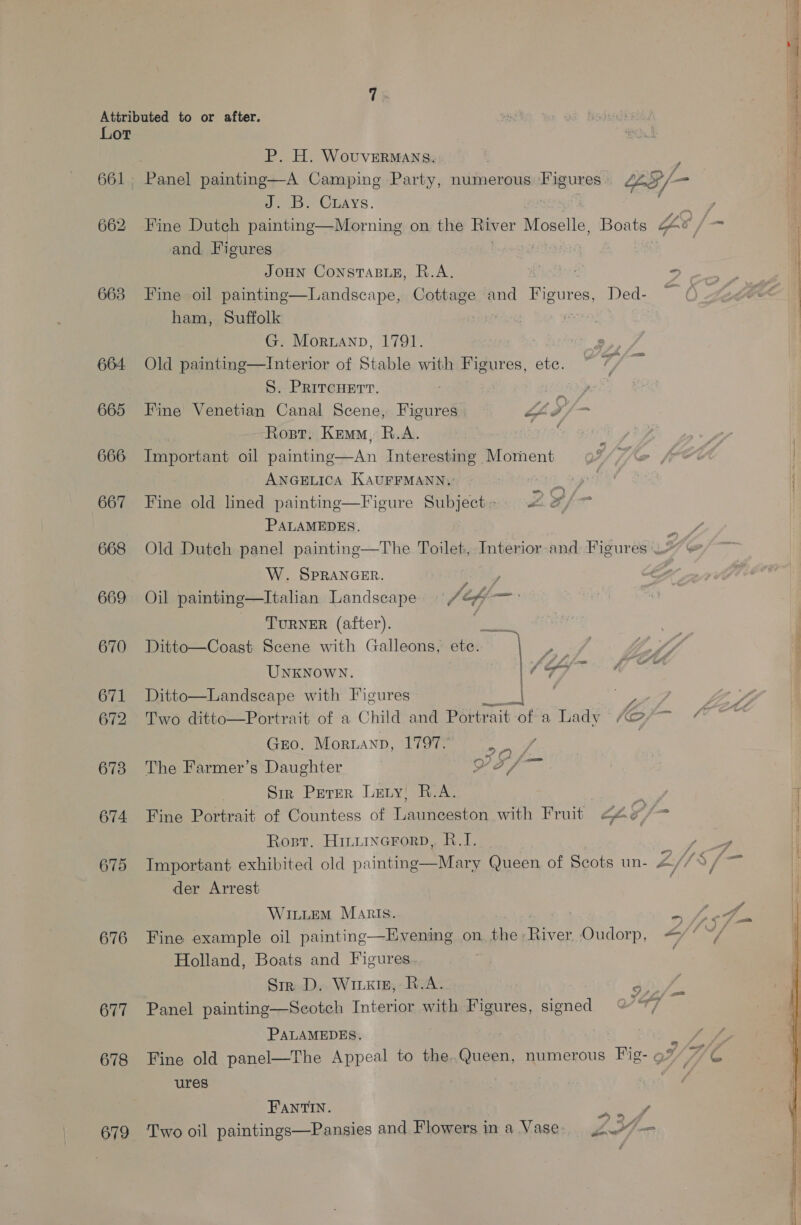 7
Attributed to or after.
Lot
P. H. Wouvermans.
661. Panel painting—A Camping Party, numerous Figures
J. B. Clays.
662 Fine Dutch painting—Morning on the River Moselle, Boats
and Figures
John Constable, R.A.
663 Fine oil painting—Landscape, Cottage and Figures, Ded-
ham, Suffolk
G. Morland, 1791.
664 Old painting—Interior of Stable with Figures, etc.
S. Pritchett.
665 Fine Venetian Canal Scene, Figures
Robt. Kemm, R.A.
666 Important oil painting—An Interesting Moment
Angelica Kauffmann.
667 Fine old lined painting—Figure Subject
Palamedes.
668 Old Dutch panel painting—The Toilet, Interior and Figures
W. Spranger.
669 Oil painting—Italian Landscape
Turner (after).
670 Ditto—Coast Scene with Galleons, etc.
Unknown.
671 Ditto—Landscape with Figures
672 Two ditto—Portrait of a Child and Portrait of a Lady
Geo. Morland, 1797.
673 The Farmer's Daughter
Sir Peter Lely, R.A.
674 Fine Portrait of Countess of Launceston with Fruit
Robt. Hillingford, R.I.
675 Important exhibited old painting—Mary Queen of Scots un-
der Arrest
Willem Maris.
676 Fine example oil painting—Evening on the River Oudorp,
Holland, Boats and Figures
Sir D. Wilkie, R.A.
677 Panel painting—Scotch Interior with Figures, signed
Palamedes.
678 Fine old panel—The Appeal to the Queen, numerous Fig-
ures
Fantin.
679 Two oil paintings—Pansies and Flowers in a Vase